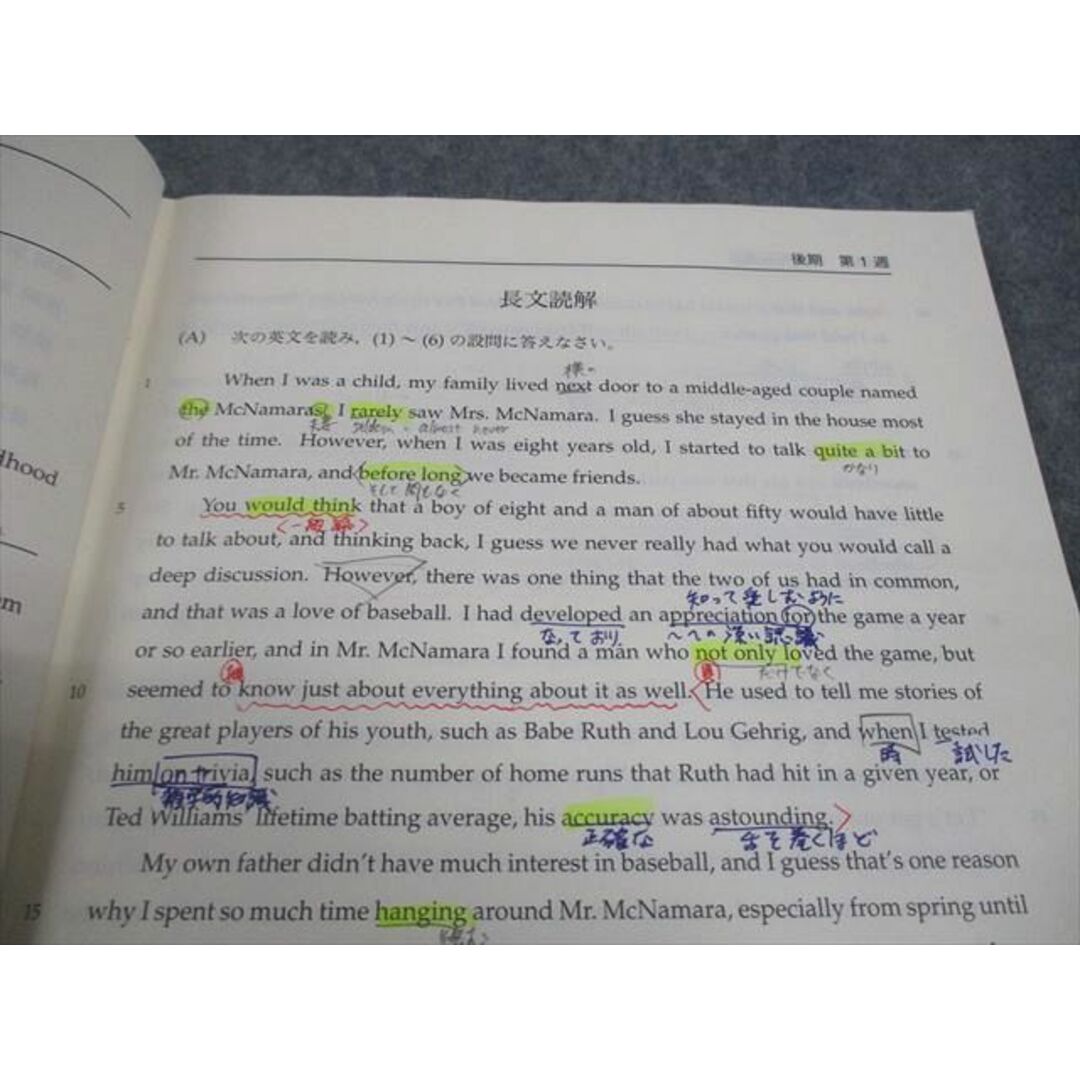 後期 第1週
長文読解
(A) 次の英文を読み，(1)～(6)の設問に答えなさい。
1 When I was a child, my family lived next door to a middle-aged couple named
the McNamaras. I rarely saw Mrs. McNamara. I guess she stayed in the house most
seldom = almost never
of the time. However, when I was eight years old, I started to talk quite a bit to
かなり
Mr. McNamara, and before long we became friends.
そして間もなく
5 You would think that a boy of eight and a man of about fifty would have little
<一般論>
to talk about, and thinking back, I guess we never really had what you would call a
deep discussion. However, there was one thing that the two of us had in common,
知って楽しむように
and that was a love of baseball. I had developed an appreciation for the game a year
なっており ～への深い認識
or so earlier, and in Mr. McNamara I found a man who not only loved the game, but
だけでなく
10 seemed to know just about everything about it as well. He used to tell me stories of
the great players of his youth, such as Babe Ruth and Lou Gehrig, and when I tested
時 試した
him on trivia, such as the number of home runs that Ruth had hit in a given year, or
雑学的知識
Ted Williams' lifetime batting average, his accuracy was astounding.
正確な 舌を巻くほど
My own father didn't have much interest in baseball, and I guess that's one reason
15 why I spent so much time hanging around Mr. McNamara, especially from spring until
dhood
m